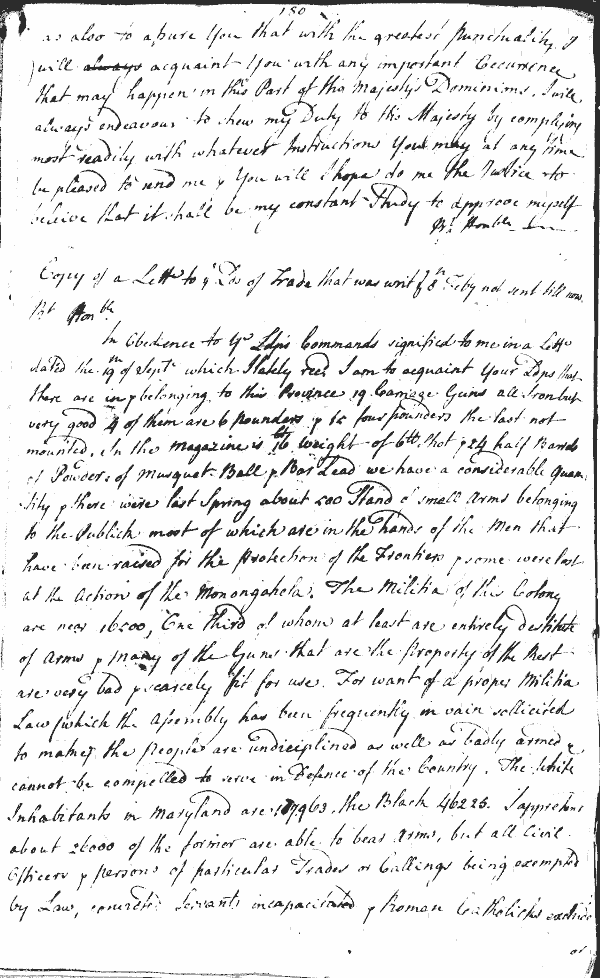 150
as also to assure You that with the greatest Punctuality I
will always acquaint You with any important Occurrence
that may happen in this Part of His Majesty's Dominions. I will
always endeavour to shew my Duty to His Majesty by complying
most readily with whatever Instructions You may at any time
be pleased to send me & You will I hope do me the Justice to
believe that it shall be my constant Study to approve myself
Rt Honble
Copy of a Lettr to ye Lds of Trade that was writ ye 8th Feby not sent till now
Rt Honble
In Obedience to Yr Ldps Commands signified to me in a Lettr
dated the 19th of Septr which I lately recd I am to acquaint Your Ldps that
there are in & belonging to this Province 19 Carriage Guns all Iron but
very good 4 of them are 6 pounders & 15 four pounders the last not
mounted. In the Magazine is 16 weight of shot & 24 half Barrels
of Powder, of Musquet Ball & Bar Lead we have a considerable Quan
tity & there were last Spring about 200 Stand of small Arms belonging
to the Publick most of which are in the hands of the Men that
have been raised for the Protection of the Frontiers & some were lost
at the Action of the Monongahela. The Militia of this Colony
are near 16500, One third of whom at least are entirely destitute
of Arms & many of the Guns that are the Property of the Rest
are very bad & scarcely fit for use. For want of a proper Militia
Law (which the Assembly has been frequently in vain sollicited
to make) the People are undiciplined as well as badly armed &
cannot be compelled to serve in Defence of the Country. The White
Inhabitants in Maryland are 107963, the Black 46225. I apprehend
about 26000 of the former are able to bear Arms, but all Civil
Officers & persons of particular Trades or Callings being exempted
by Law, Servants incapacitated & Roman Catholicks exclude
or